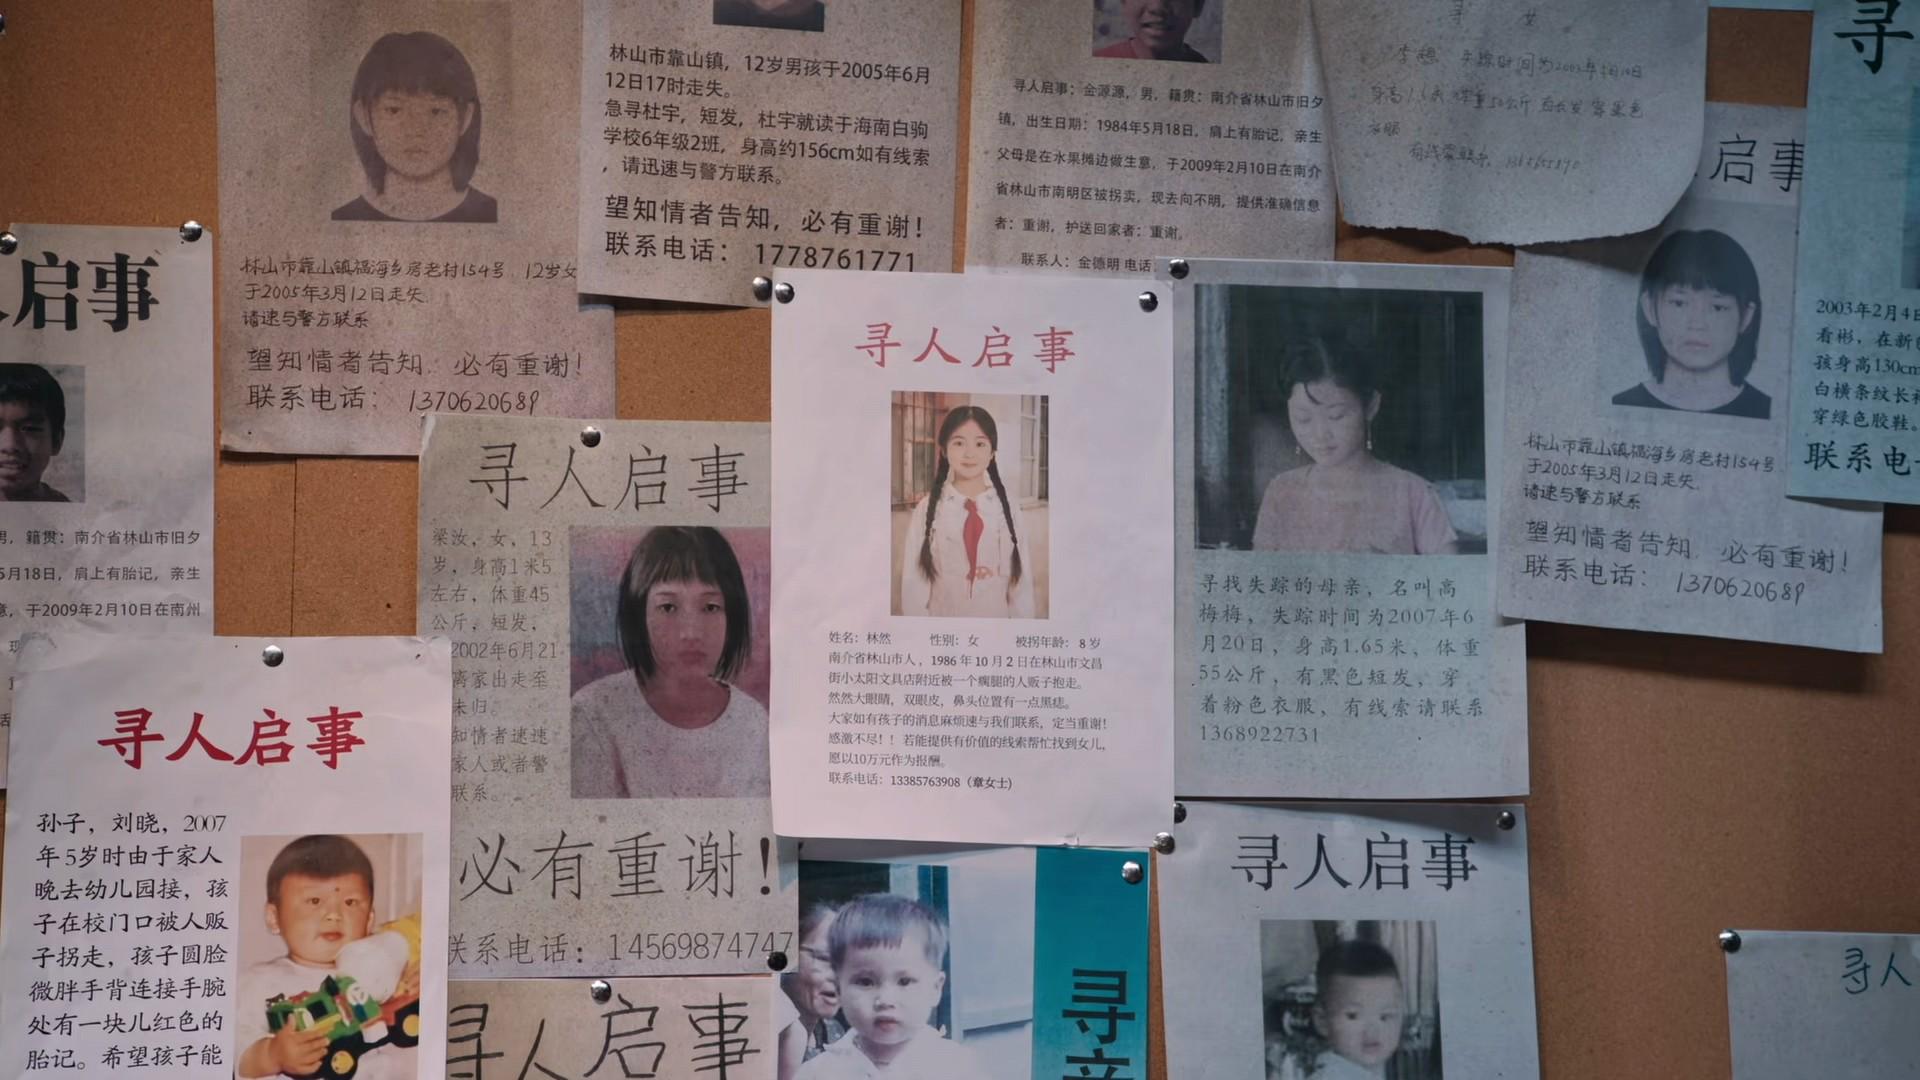 林山市靠山镇，12岁男孩于2005年6月
12日17时走失。
急寻杜宇，短发，杜宇就读于海南白驹
学校6年级2班，身高约156cm如有线索
，请迅速与警方联系。
望知情者告知，必有重谢！
联系电话：1778761771
寻人启事：金源源，男，籍贯：南介省林山市旧夕
镇，出生日期：1984年5月18日，肩上有胎记，亲生
父母是在水果摊边做生意，于2009年2月10日在南介
省林山市南明区被拐卖，现去向不明，提供准确信息
者：重谢，护送回家者：重谢。
联系人：金德明 电话
寻 女
失踪时间为2003年
有线索联系
林山市靠山镇福海乡房老村154号 12岁女
于2005年3月12日走失.
请速与警方联系
望知情者告知. 必有重谢!
联系电话： 1370620689
人启事
男，籍贯：南介省林山市旧夕
5月18日，肩上有胎记，亲生
意，于2009年2月10日在南州
寻人启事
梁汝，女，13
岁，身高1米5
左右，体重45
公斤，短发，
2002年6月21
离家出走至
未归。
知情者速速
家人或者警
联系。
必有重谢！
联系电话：14569874747
寻人启事
姓名：林然 性别：女 被拐年龄：8岁
南介省林山市人，1986年10月2日在林山市文昌
街小太阳文具店附近被一个瘸腿的人贩子抱走。
然然大眼睛，双眼皮，鼻头位置有一点黑痣。
大家如有孩子的消息麻烦速与我们联系，定当重谢！
感激不尽！！若能提供有价值的线索帮忙找到女儿，
愿以10万元作为报酬。
联系电话：13385763908（章女士)
寻找失踪的母亲，名叫高
梅梅，失踪时间为2007年6
月20日，身高1.65米，体重
55公斤，有黑色短发，穿
着粉色衣服，有线索请联系
1368922731
启事
林山市靠山镇福海乡房老村154号
于2005年3月12日走失.
请速与警方联系
望知情者告知. 必有重谢!
联系电话： 1370620689
寻
2003年2月4日
看彬，在新
孩身高130cm
白横条纹长
穿绿色胶鞋。
联系电
寻人启事
孙子，刘晓，2007
年5岁时由于家人
晚去幼儿园接，孩
子在校门口被人贩
子拐走，孩子圆脸
微胖手背连接手腕
处有一块儿红色的
胎记。希望孩子能
寻人启事
寻
寻人启事
寻人